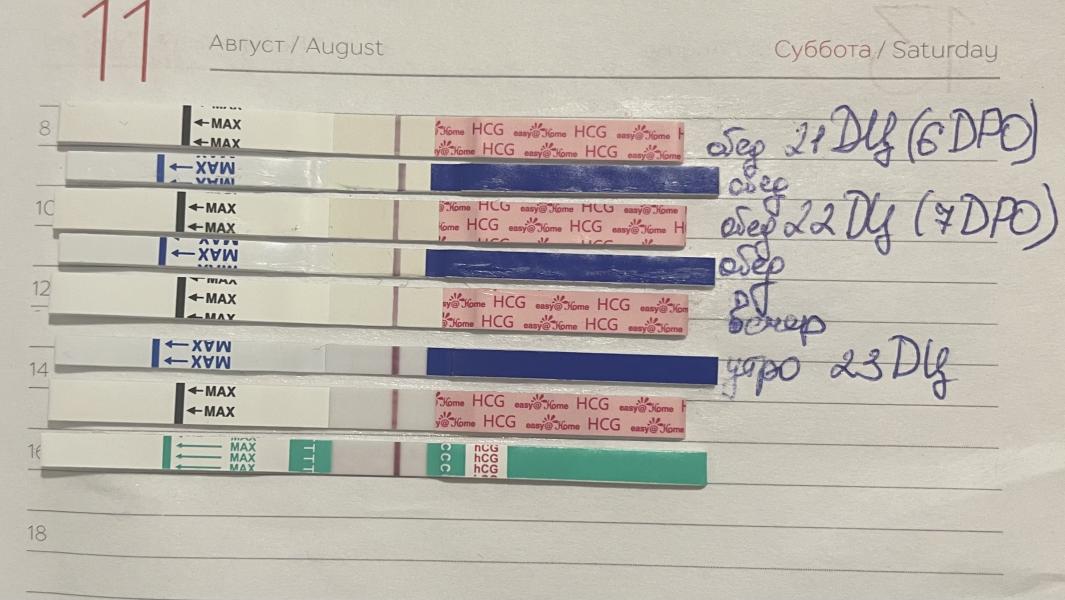 11 Август / August Суббота / Saturday
8
MAX
←MAX
MAX
HCG easy@Home HCG easy@Home HCG
easy@Home HCG easy@Home HCG easy@Home
обед 21 ДЦ (6 DPO)
←MAX
←MAX
обед
10
←MAX
←MAX
Home HCG easy@Home HCG easy@Home H
HCG easy@Home HCG easy@Home
обед 22 ДЦ (7 DPO)
MAX
←MAX
MAX
обед
12
MAX
←MAX
MAX
easy@Home HCG easy@Home HCG easy@Home
HCG easy@Home HCG easy@Home
вечер
14
←MAX
←MAX
утро 23 ДЦ
←MAX
←MAX
easy@Home HCG easy@Home HCG easy@Home
easy@Home HCG easy@Home HCG easy@Home
16
MAX
MAX
MAX
TTT
CCC
hCG
hCG
hCG
18